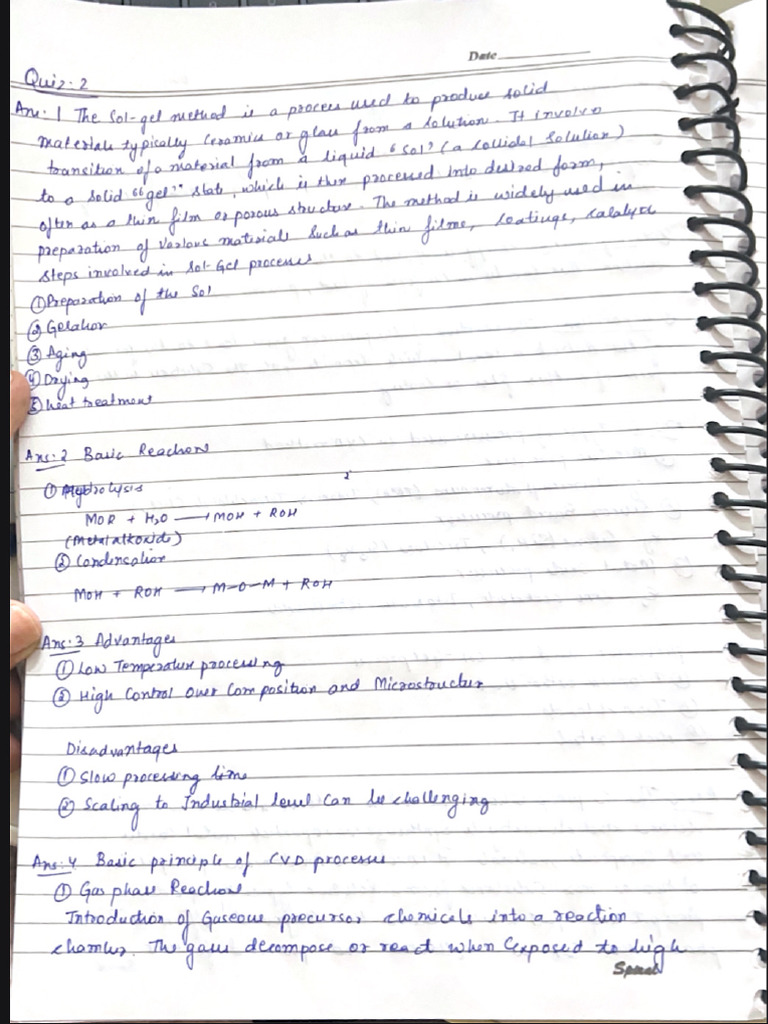 Date
Quiz: 2
Ans: 1 The Sol-gel method is a process used to produce solid
materials typically ceramics or glass from a solution. It involve
transition of a material from a liquid "sol" (a collidal solution)
to a solid "gel" state, which is then processed into desired form,
often as a thin film or porous structure. The method is widely used in
preparation of various materials such as thin films, coatings, catalysts
steps involved in Sol-Gel processes
① Preparation of the Sol
② Gelation
③ Aging
④ Drying
⑤ heat treatment
Ans: 2 Basic Reactions
① Hydrolysis
MOR + H2O → MOH + ROH
(Metal alkoxide)
② Condensation
MOH + ROH → M-O-M + ROH
Ans: 3 Advantages
① Low Temperature processing
② High Control Over Composition and Microstructure
Disadvantages
① Slow processing time
② Scaling to Industrial level can be challenging
Ans: 4 Basic principle of CVD processes
① Gas phase Reactions
Introduction of Gaseous precursor chemicals into a reaction
chamber. The gases decompose or react when exposed to high
Spiral